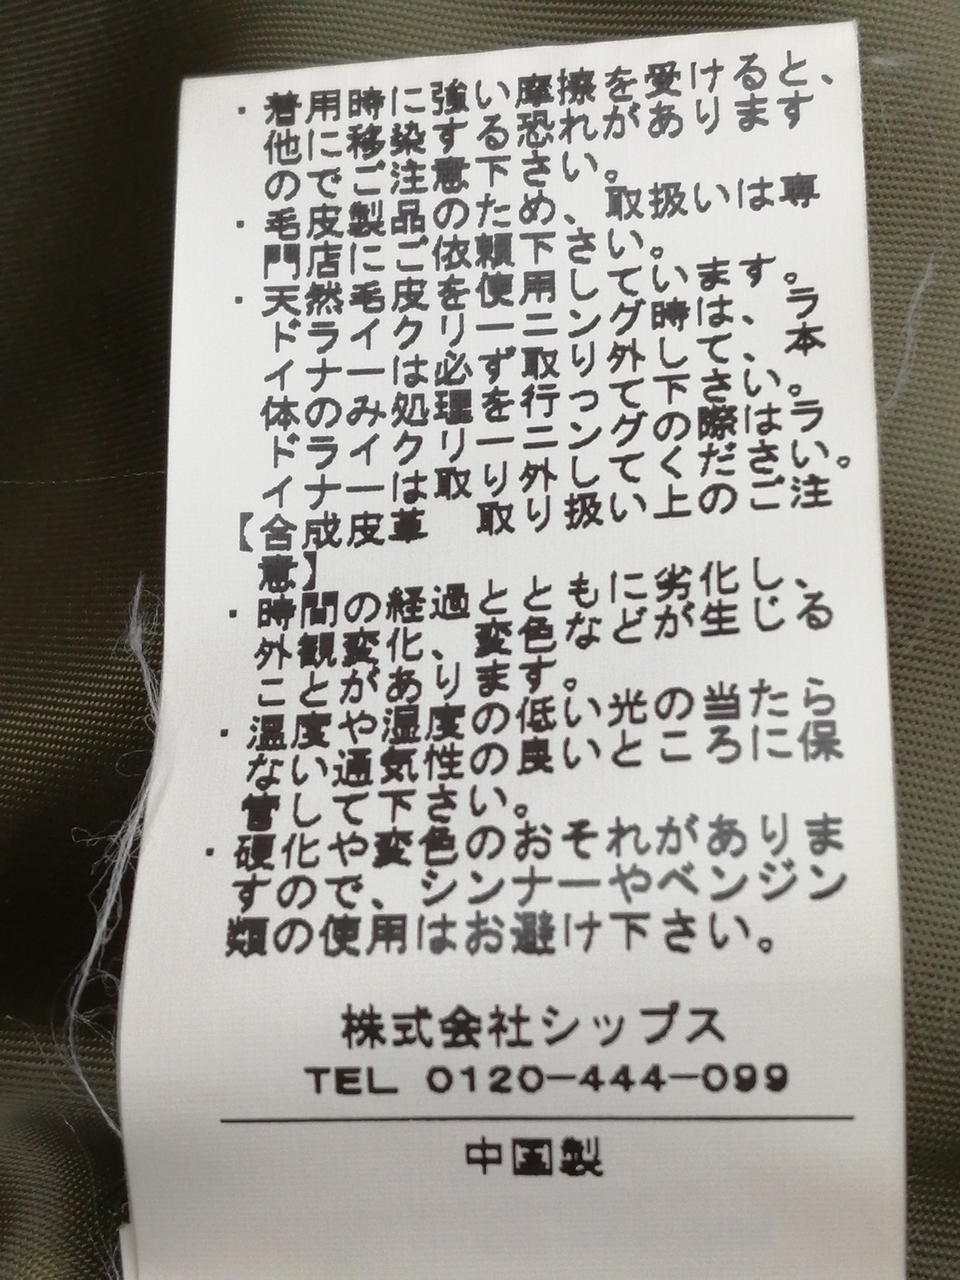 ・着用時に強い摩擦を受けると、
他に移染する恐れがあります
のでご注意下さい。
・毛皮製品のため、取扱いは専
門店にご依頼下さい。
・天然毛皮を使用しています。
ドライクリーニング時は、ラ
イナーは必ず取り外して、本
体のみ処理を行って下さい。
ドライクリーニングの際はラ
イナーは取り外してください。
【合成皮革　取り扱い上のご注
意】
・時間の経過とともに劣化し、
外観変化、変色などが生じる
ことがあります。
・温度や湿度の低い光の当たら
ない通気性の良いところに保
管して下さい。
・硬化や変色のおそれがありま
すので、シンナーやベンジン
類の使用はお避け下さい。
株式会社シップス
TEL 0120-444-099
中国製